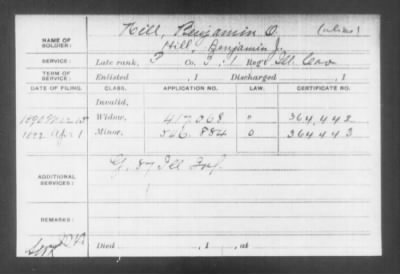 NAME OF SOLDIER: Hill, Benjamin O. (alias)
Hill, Benjamin J.
SERVICE: Late rank, P Co. I, 1 Reg't Ill Cav
TERM OF SERVICE: Enlisted , 1 Discharged , 1
DATE OF FILING. CLASS. APPLICATION NO. LAW. CERTIFICATE NO.
Invalid,
1890 15 Widow, 417,068 " 364,442
1892 Apr 1 Minor, 546,884 O 364,443
ADDITIONAL SERVICES: G. 87 Ill Inf.
REMARKS:
Died , 1 , at